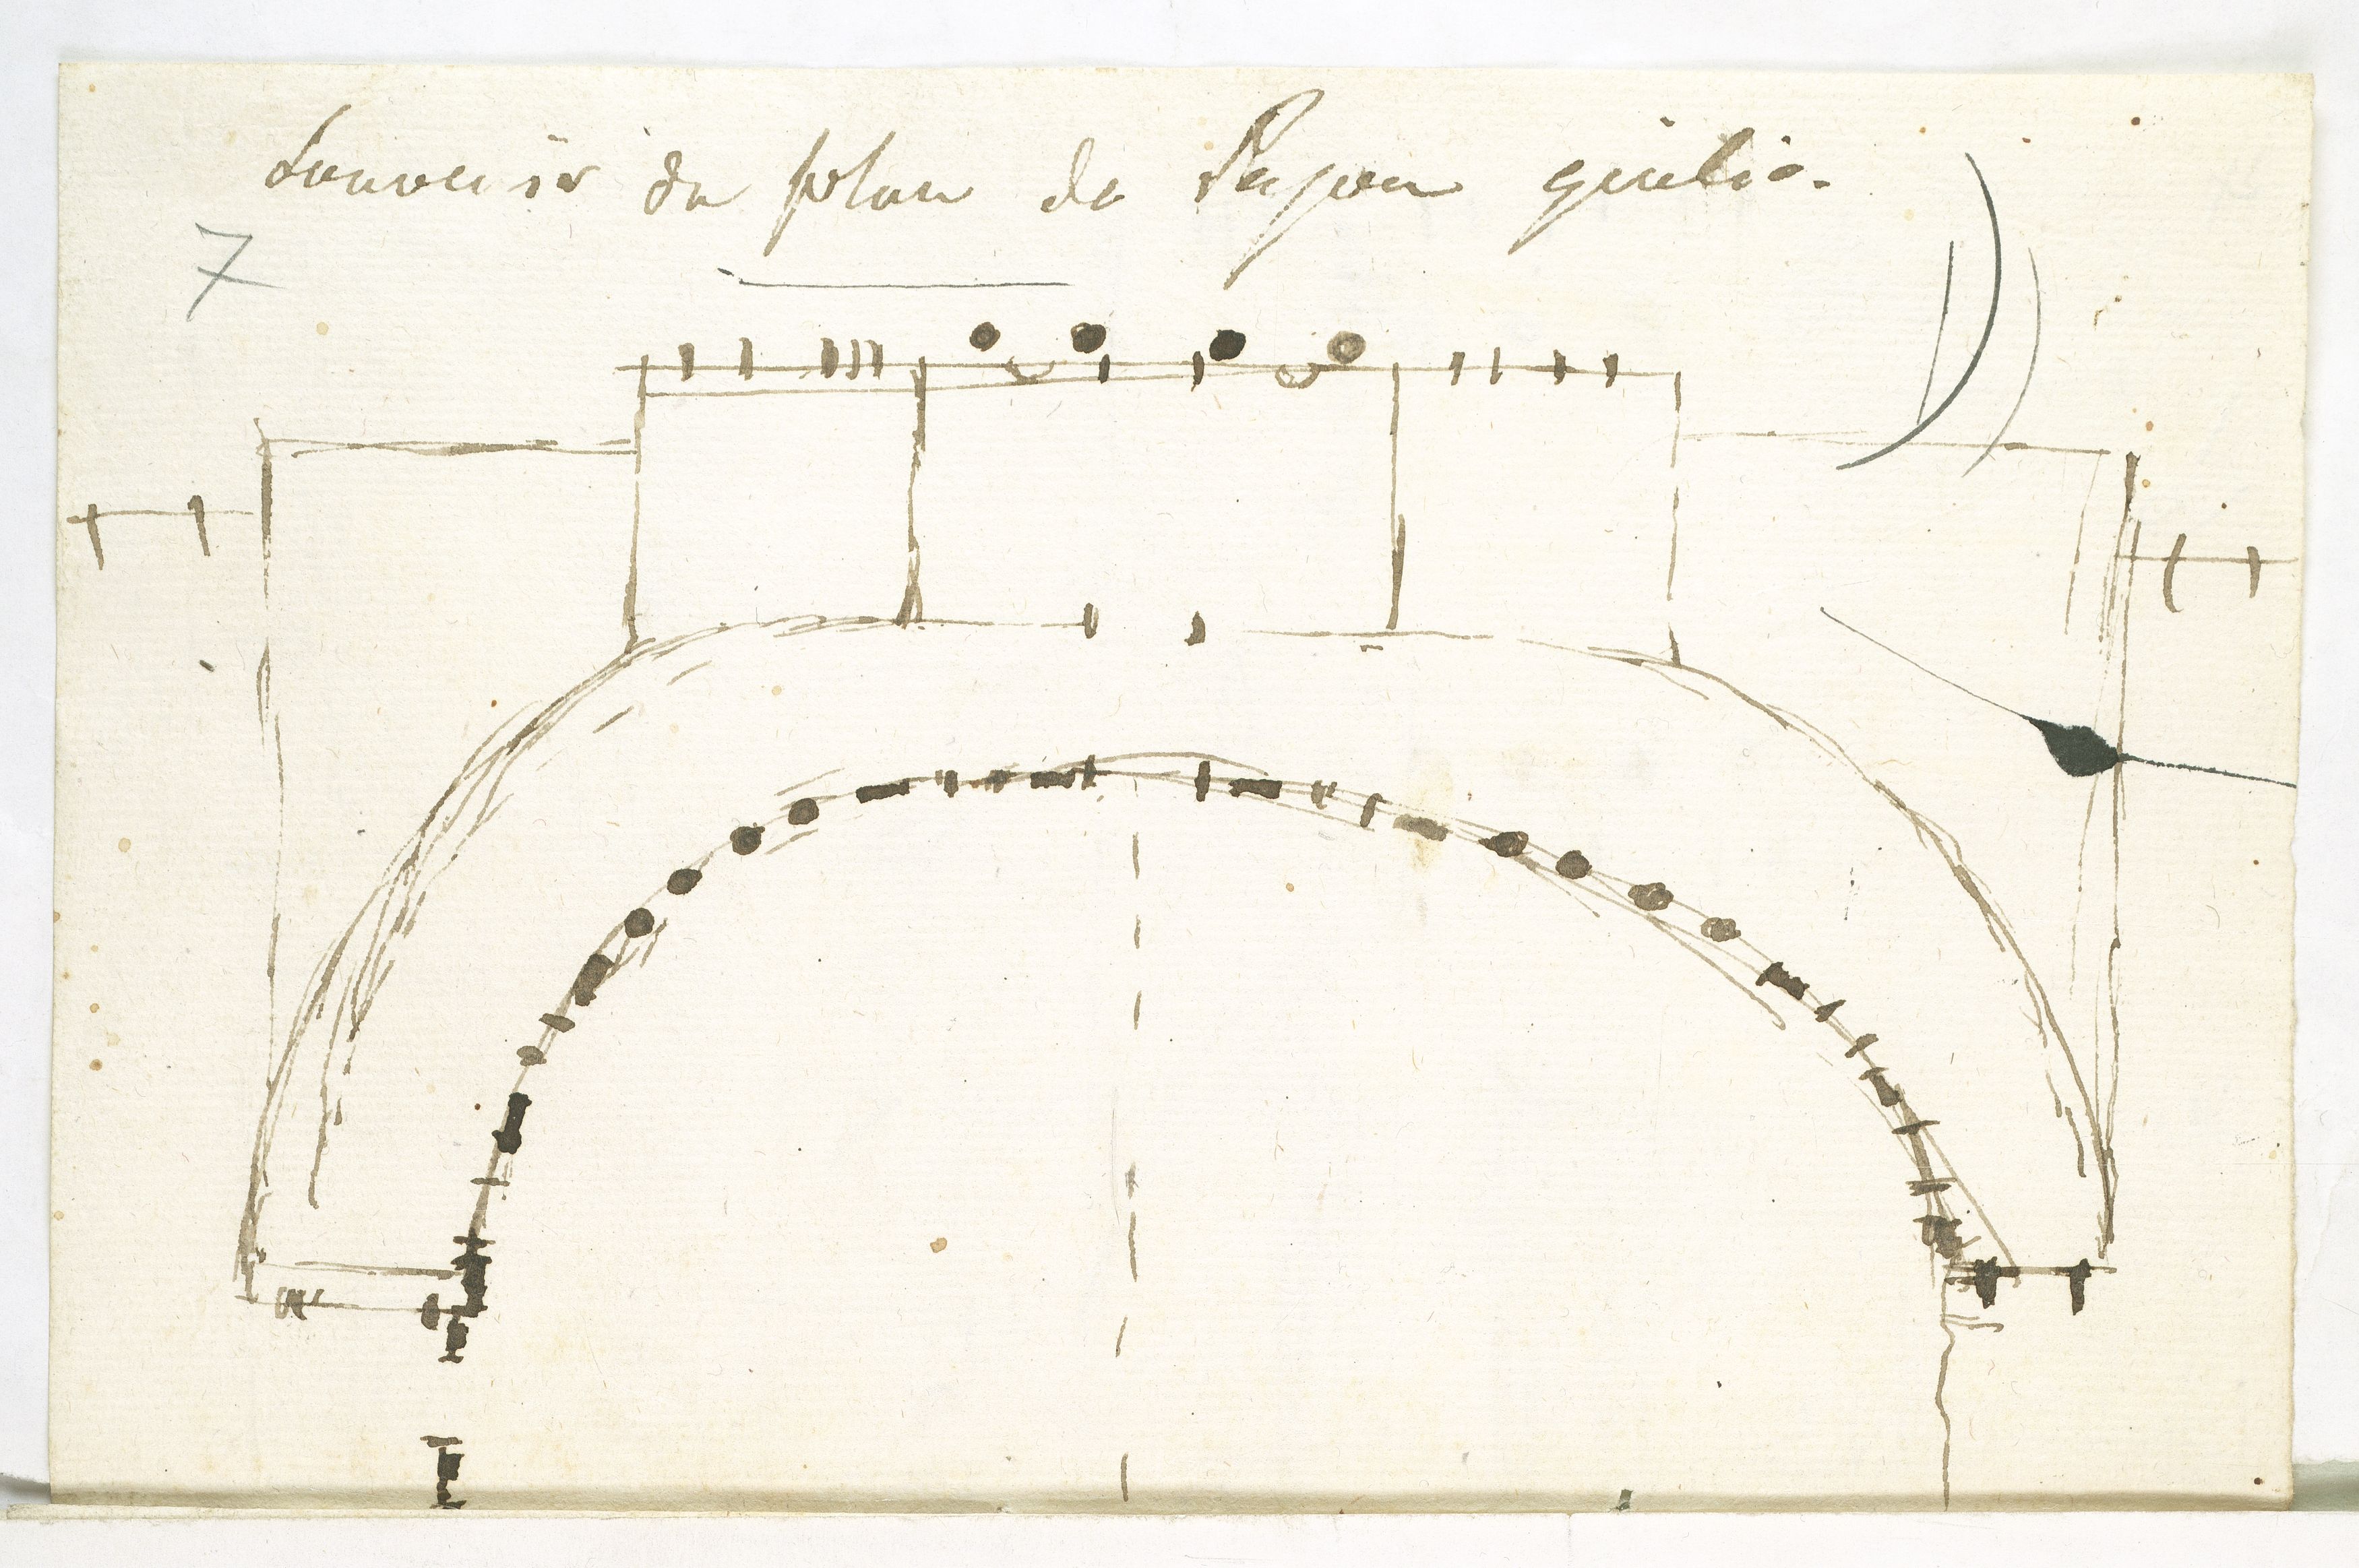 Souvenir du plan de Papa giulio.
7